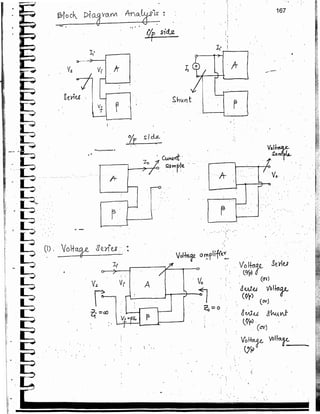 167
Block Diagram Analysis :
i/p side
Ii
Vs
Vi
A
Series
Vf
β
Ii
Is
A
Shunt
β
o/p side
Io
Current
sample
A
β
Voltage
Sample
A
Vo
β
(1). Voltage Series :
Voltage amplifier
Ii
Vs
Vi
A
Vo
Zi = ∞
Z0 = 0
Vf = βVo
β
Voltage Series
(o/p)
(or)
Series Voltage
(i/p)
(or)
Series Shunt
(i/p)
(or)
Voltage Voltage
(i/p)